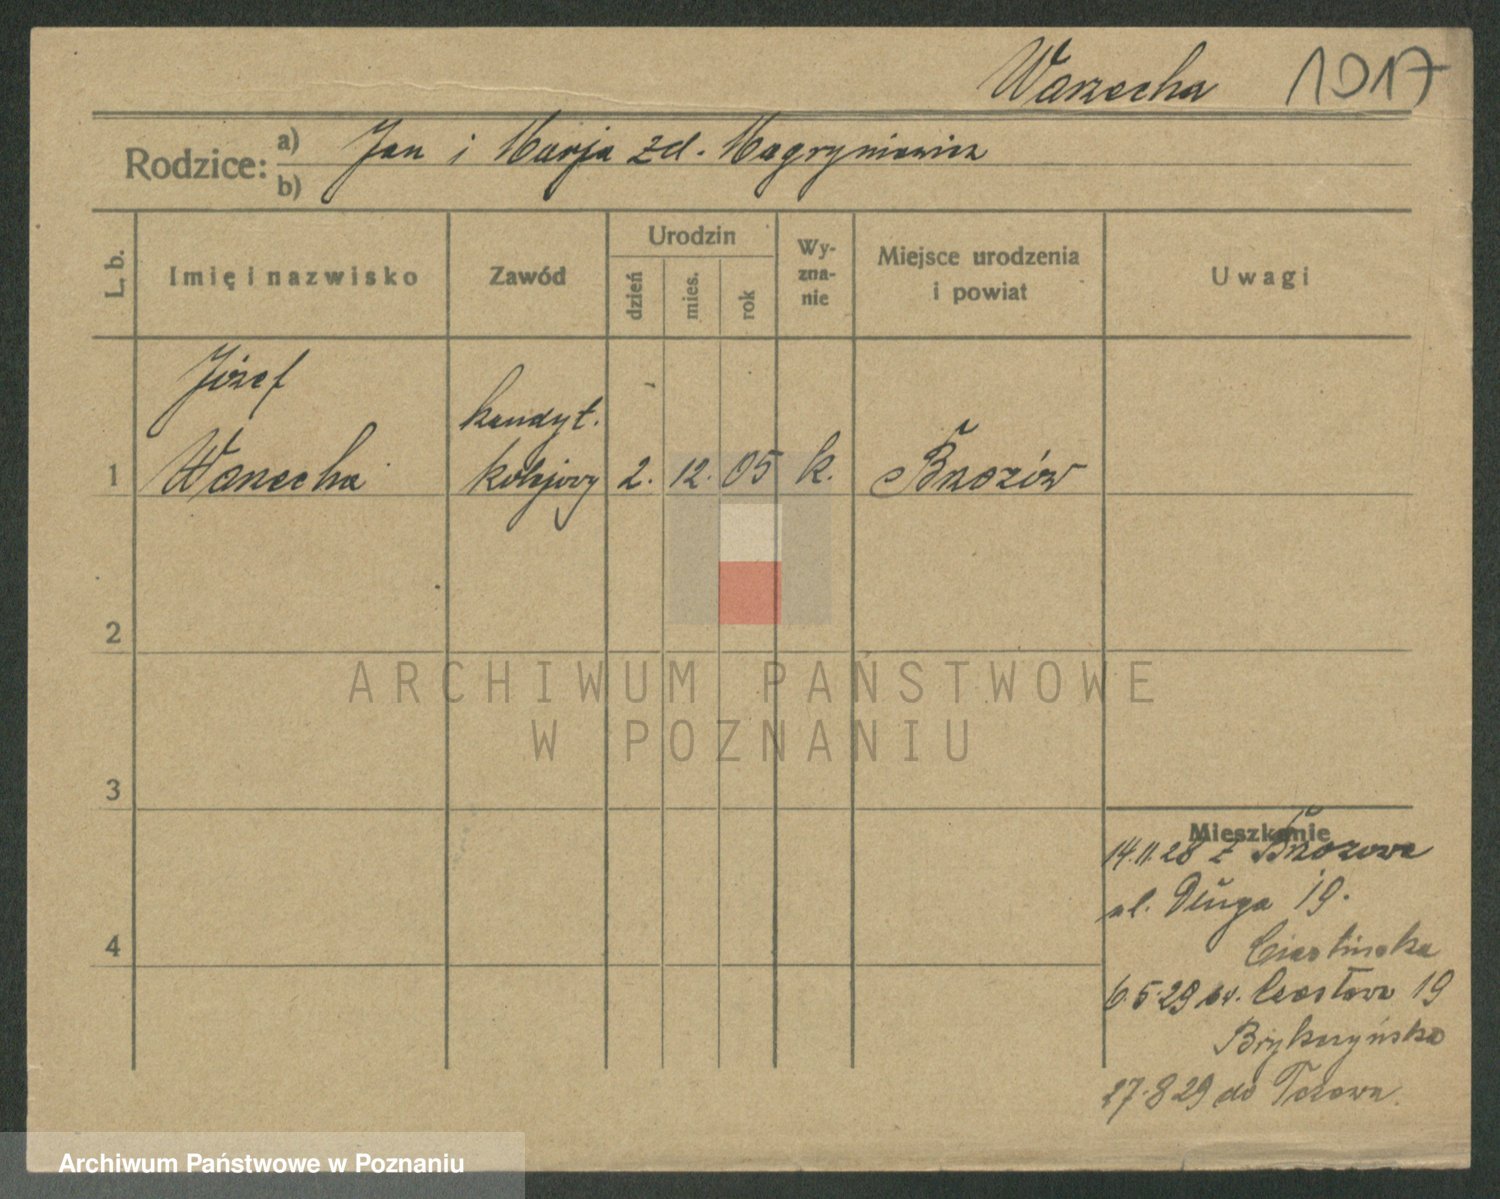 Warzecha 1917
Rodzice: a) Jan i Marja zd. Magryniewicz
b)
L. b. Imię i nazwisko Zawód Urodzin dzień mies. rok Wy-zna-nie Miejsce urodzenia i powiat Uwagi
Józef
kandyt.
1 Warzecha kolejowy 2. 12. 05 k. Brzozów
2
ARCHIWUM PAŃSTWOWE
W POZNANIU
3
Mieszkanie
14.11.28 z Brzozowa
ul. Długa 19.
4
6.5.29 św. Czesława 19
27.8.29 do
Archiwum Państwowe w Poznaniu